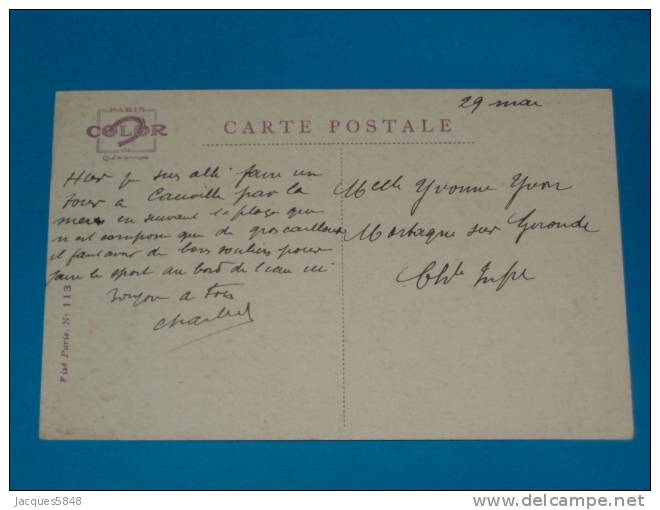 29 mai
PARIS
COLOR
CARTE POSTALE
Hier je suis allé faire un
tour a Cauville par la
mer en suivant la plage qui
n est composé que de gros cailloux
il faut avoir de bons souliers pour
faire le sport au bord de l'eau ici
Bonjour a tous
Charles
Melle Yvonne Yvon
Mortagne sur Gironde
Chte Infre
Visé Paris. N° 113
Jacques5848
delcampe.net